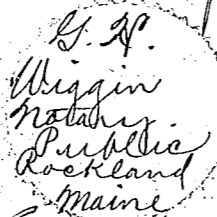 G. W.
Wiggin
Notary
Public
Rockland
Maine